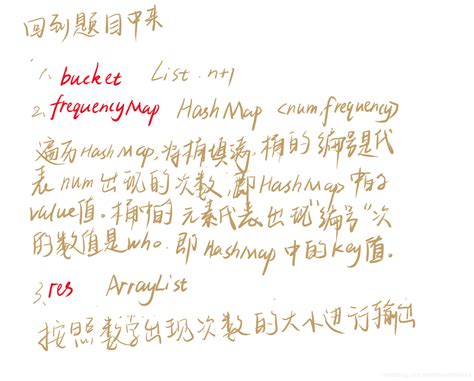 回到题目中来
1. bucket List n+1
2. frequencyMap HashMap <num,frequency>
遍历HashMap,将桶填满,桶的编号是代
表num出现的次数,即HashMap中的
value值。桶中的元素代表出现"编号"次
的数值是who.即HashMap中的key值.
3. res ArrayList
按照数字出现次数的大小进行输出